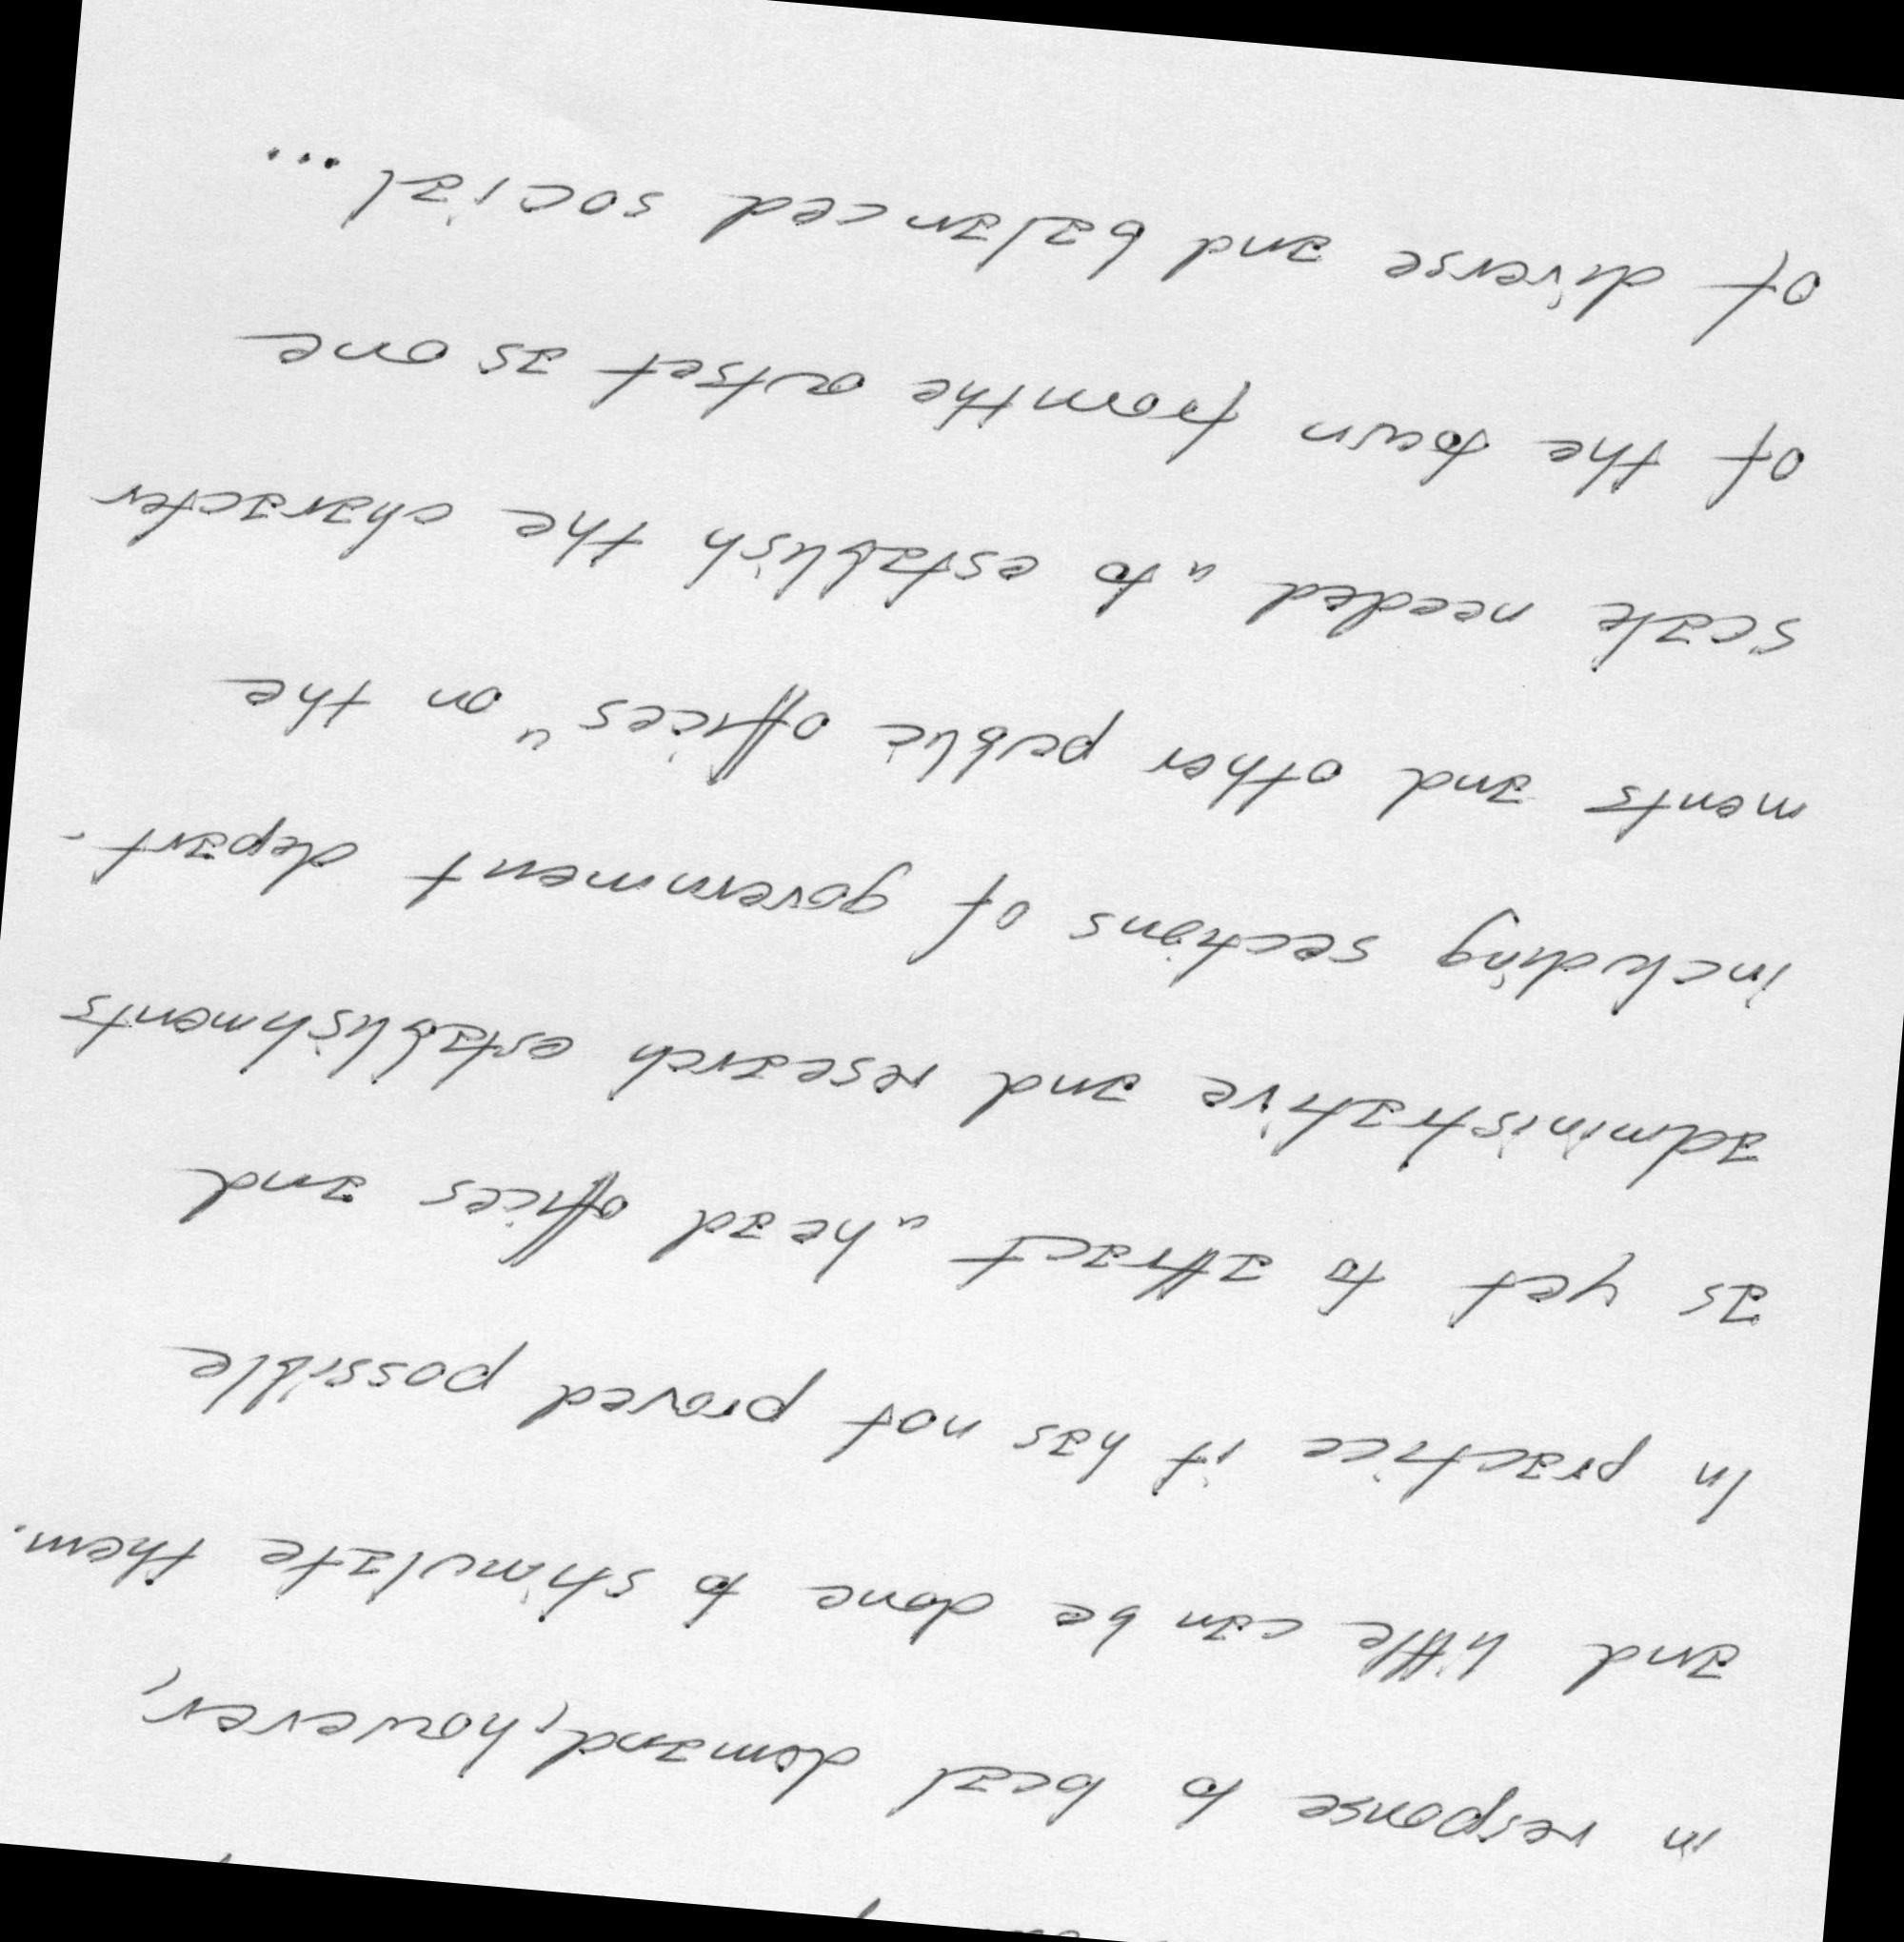 in response to local demand, however,
and little can be done to stimulate them.
In practice it has not proved possible
as yet to attract "head offices and
administrative and research establishments
including sections of government depart-
ments and other public offices" on the
scale needed "to establish the character
of the town from the outset as one
of diverse and balanced social ...